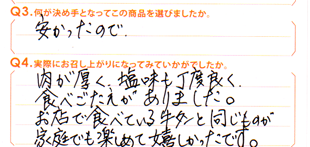 Q3.何が決め手となってこの商品を選びましたか。
安かったので.
Q4.実際にお召し上がりになってみていかがでしたか。
肉が厚く、塩味も丁度良く、
食べごたえがありました。
お店で食べている牛タンと同じものが
家庭でも楽しめて嬉しかったです。